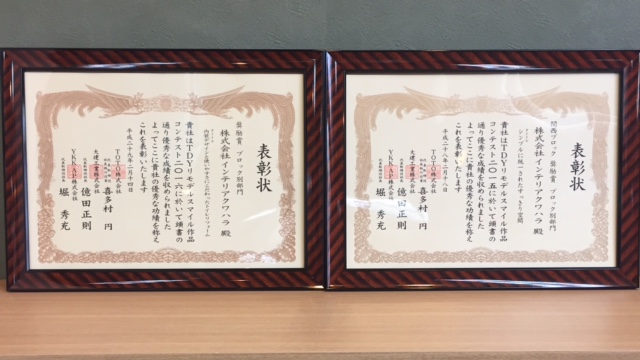 表彰状
奨励賞 ブロック別部門
株式会社インテリアクワハラ 殿
貴社はTDYリモデルスマイル作品
コンテスト二〇一六に於いて頭書の
通り優秀な成績を収められました
よってここに貴社の優秀な功績を称え
これを表彰いたします
平成二十九年二月十四日
TOTO株式会社
喜多村 円
大建工業株式会社
億田正則
YKKAP株式会社
堀 秀充
表彰状
関西ブロック 奨励賞 ブロック別部門
シンプルに統一されたすっきり空間
株式会社インテリアクワハラ 殿
貴社はTDYリモデルスマイル作品
コンテスト二〇一五に於いて頭書の
通り優秀な成績を収められました
よってここに貴社の優秀な功績を称え
これを表彰いたします
平成二十八年二月十八日
TOTO株式会社
喜多村 円
大建工業株式会社
億田正則
YKKAP株式会社
堀 秀充